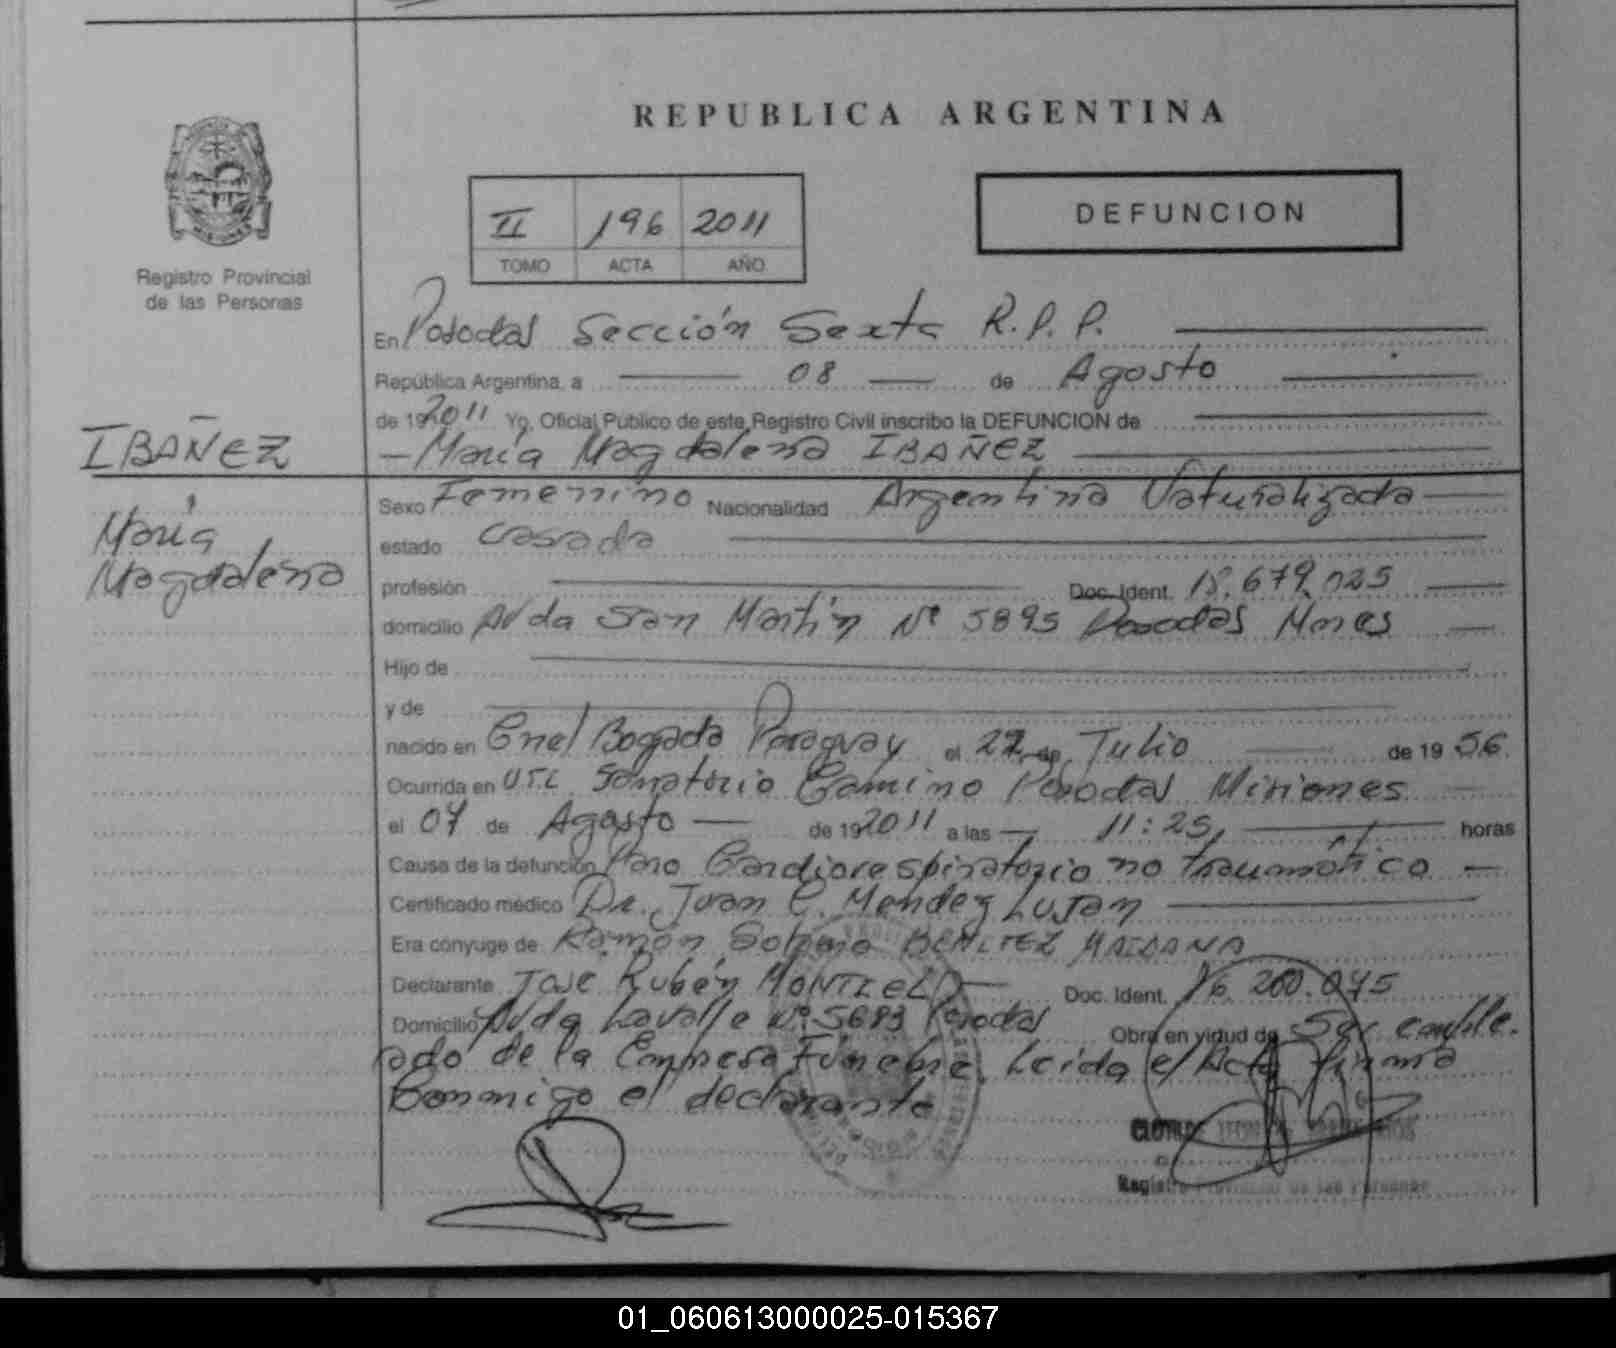 REPUBLICA ARGENTINA
II 196 2011
TOMO ACTA AÑO
DEFUNCION
Registro Provincial
de las Personas
En Posadas Sección Sexta R.P.P.
República Argentina, a 08 de Agosto
de 192011 Yo, Oficial Público de este Registro Civil inscribo la DEFUNCION de
María Magdalena IBAÑEZ
IBAÑEZ
María
Magdalena
Sexo Femenino Nacionalidad Argentina Naturalizada
estado casada
profesión Doc. Ident. 18.679.025
domicilio Avda San Martín Nº 5895 Posadas Mnes
Hijo de
y de
nacido en Cnel Bogado Paraguay el 22 de Julio de 19 56.
Ocurrida en Sanatorio Camino Posadas Misiones
el 07 de Agosto de 192011 a las 11:25, horas
Causa de la defunción Paro Cardiorespiratorio no traumático
Certificado médico Dr. Juan C. Mendez Lujan
Era cónyuge de Ramón BENITEZ MAIDANA
Declarante Jose Rubén MONTIEL Doc. Ident. 16.200.045
Domicilio Avda Lavalle Nº 5683 Posadas Obra en virtud de Ser emple.
ado de la Empresa Fúnebre. Leida el Acta firma
Conmigo el declarante
Registro Provincial de las Personas
01_060613000025-015367